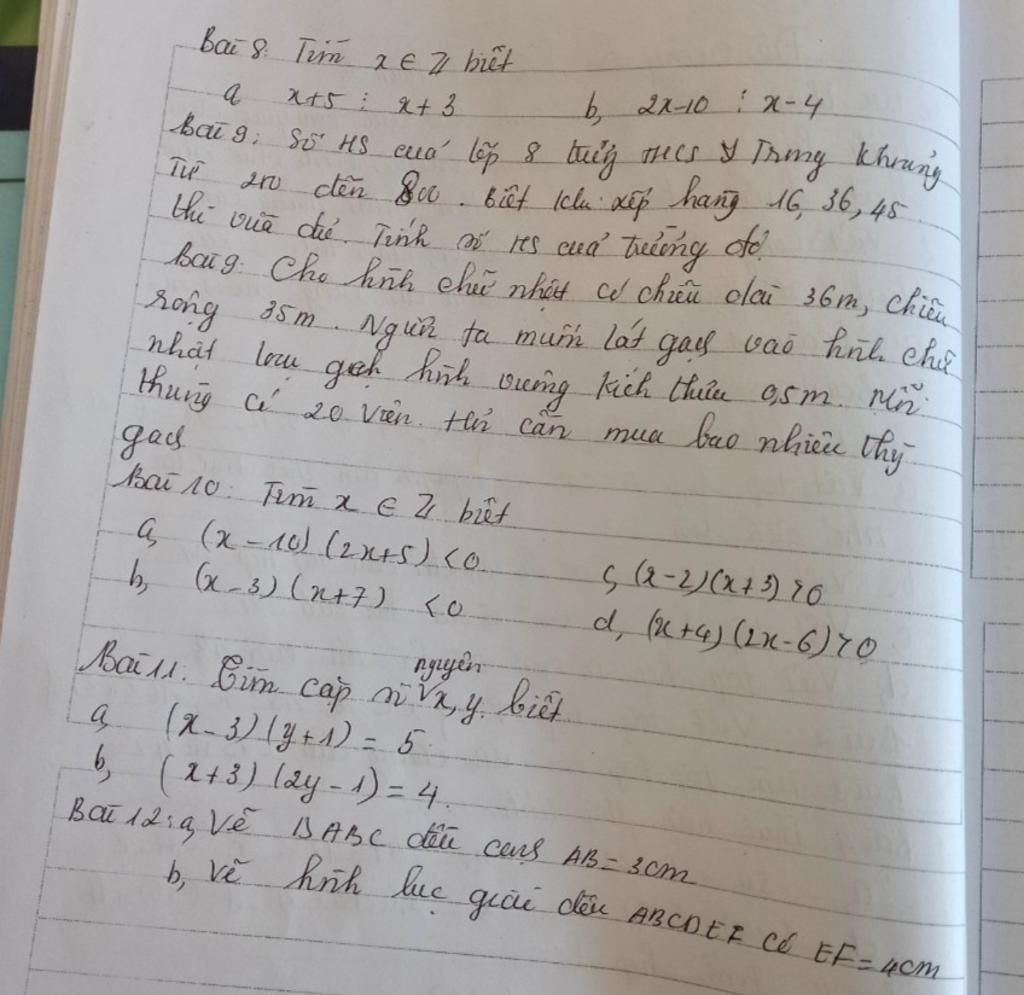 Bài 8: Tìm x ∈ Z biết
a, x+5 ⋮ x+3 b, 2x-10 ⋮ x-4
Bài 9: Số HS của lớp 8 trường THCS Trong Khoảng
Từ 200 đến 800. Biết khi xếp hàng 16, 36, 45
thì vừa đủ. Tính số HS của trường đó.
Bài 9: Cho hình chữ nhật có chiều dài 36m, chiều
rộng 35m. Người ta muốn lát gạch vào hình chữ
nhật loại gạch hình vuông kích thước 0,5m. Mỗi
thùng có 20 viên. thì cần mua bao nhiêu thùng
gạch
Bài 10: Tìm x ∈ Z biết
a, (x-10)(2x+5) <0 c, (x-2)(x+3) >0
b, (x-3)(x+7) <0 d, (x+4)(2x-6) >0
Bài 11: Tìm cặp số nguyên x,y biết
a, (x-3)(y+1) = 5
b, (x+3)(2y-1) = 4.
Bài 12: a, Vẽ ΔABC đều cạnh AB = 3cm
b, Vẽ hình lục giác đều ABCDEF có EF = 4cm